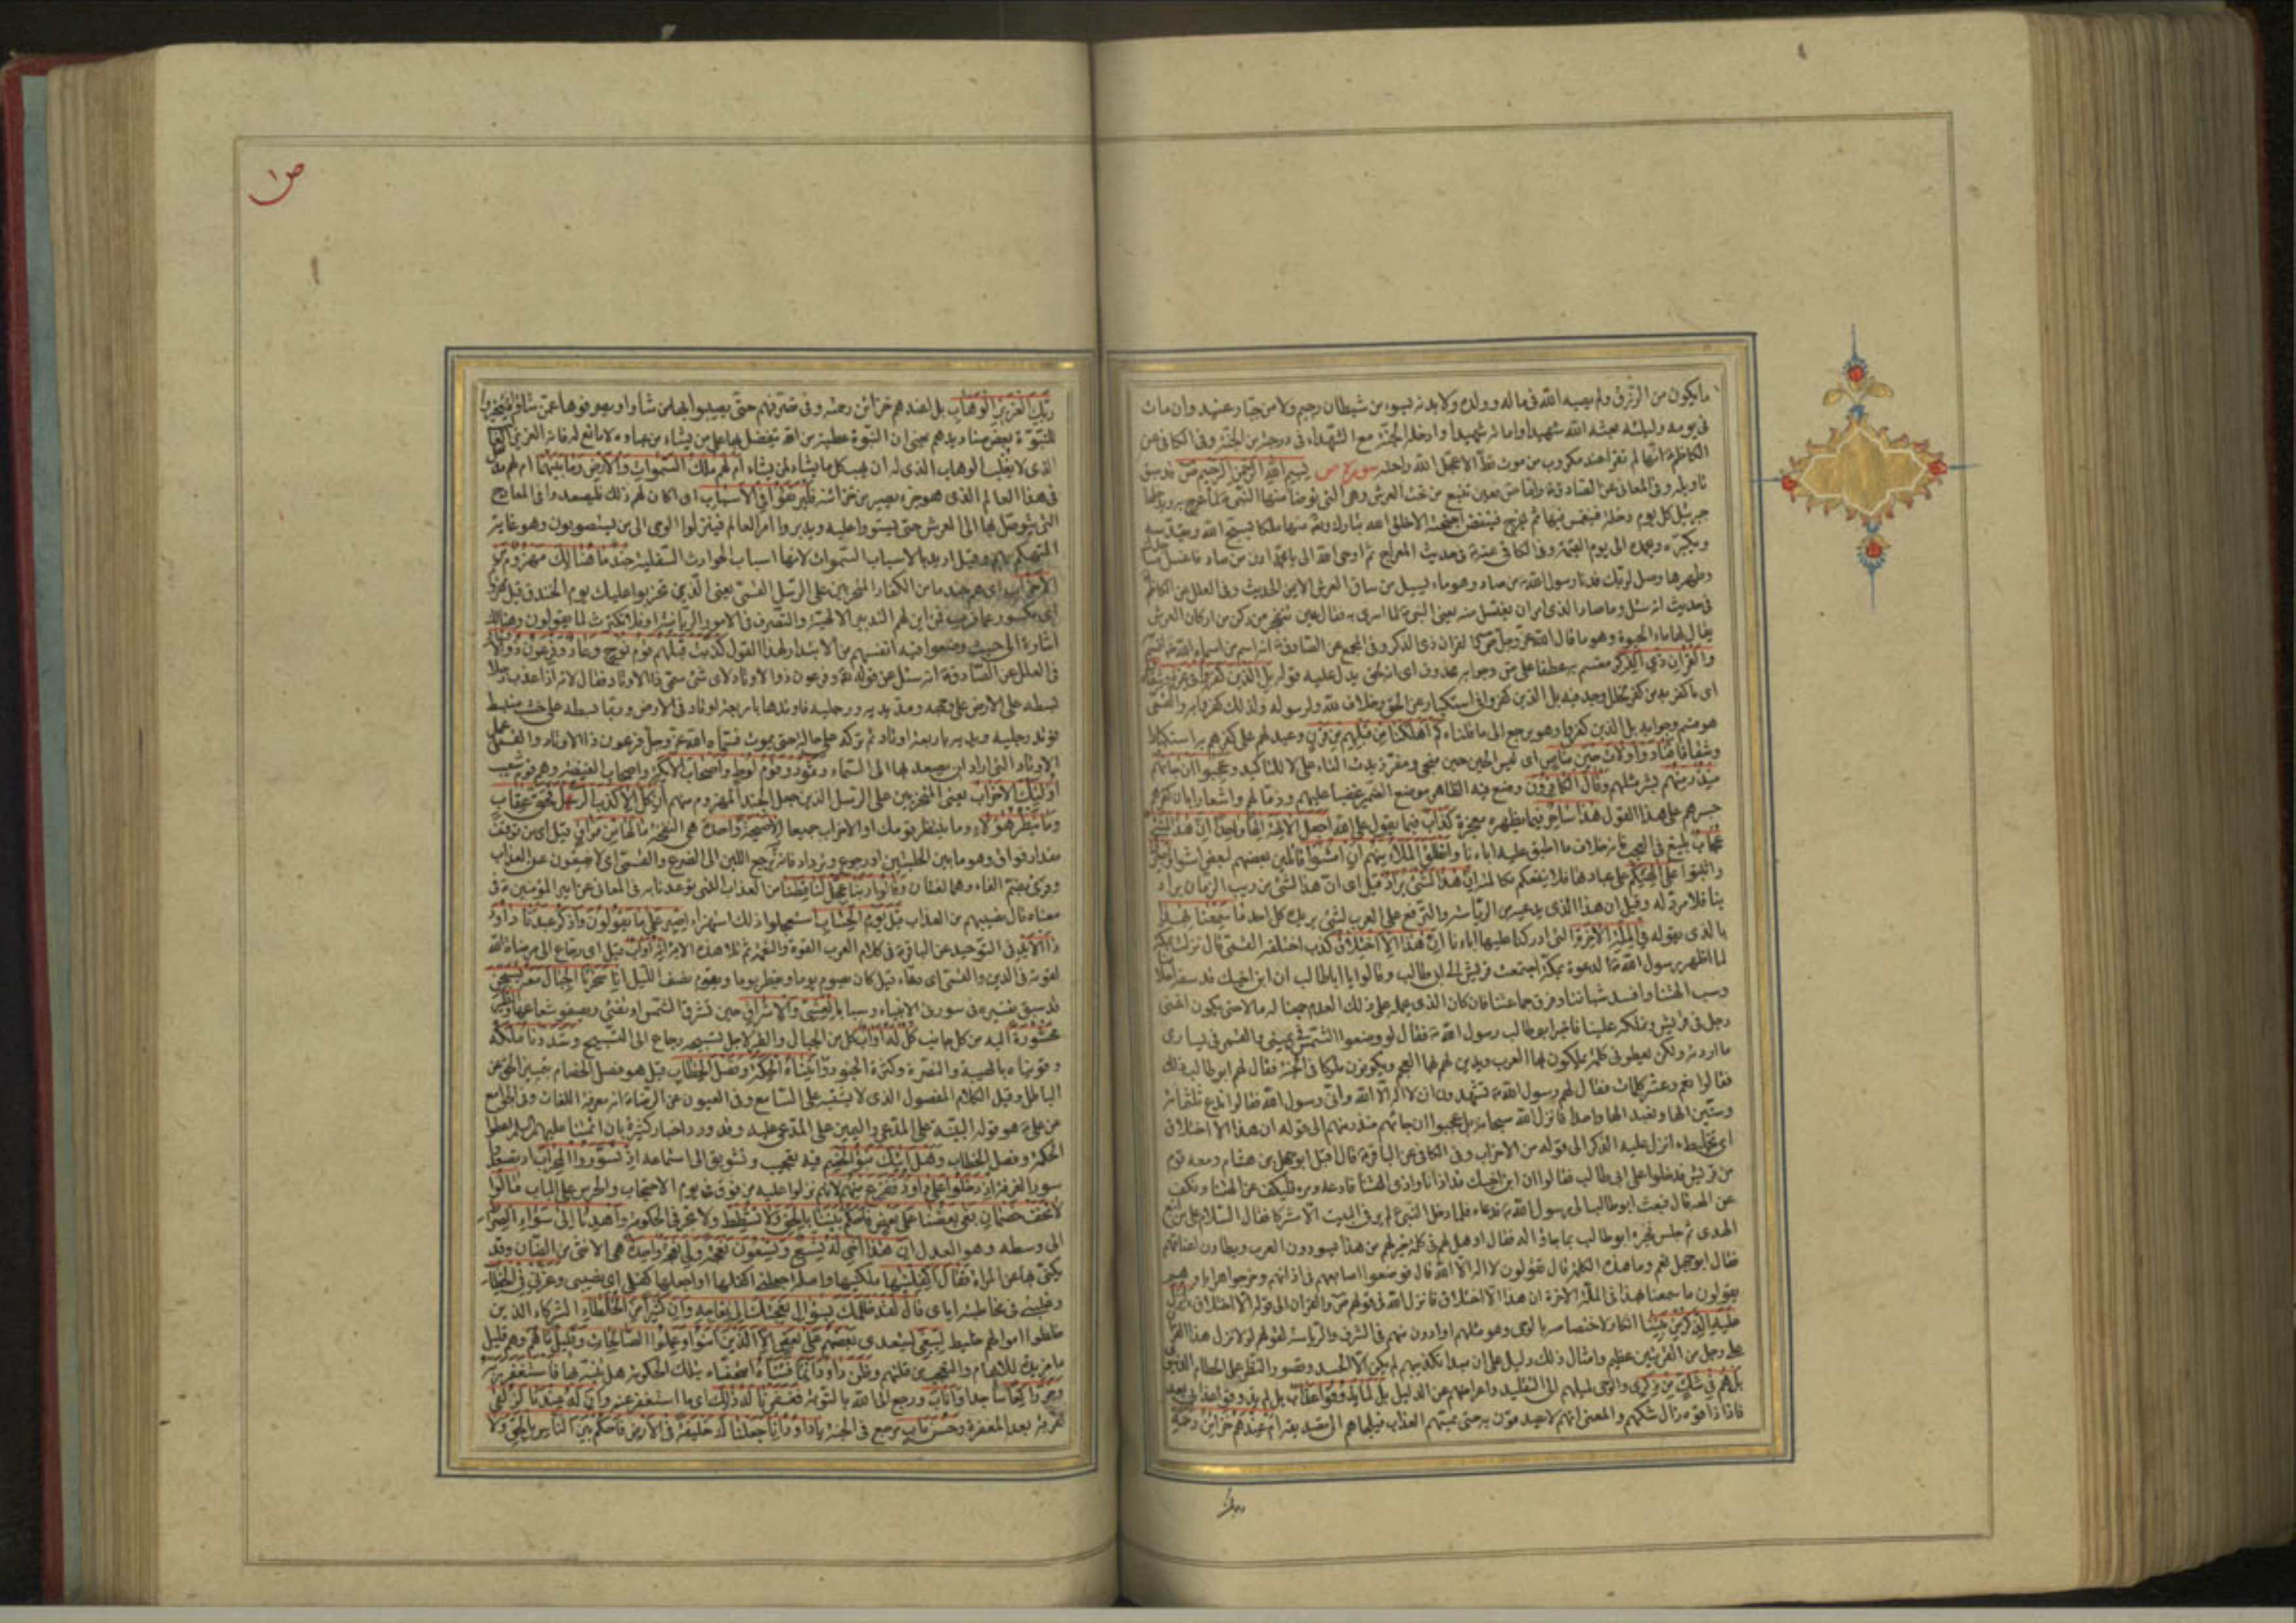 ما يكون من الرزق ولم يصبه الله في ماله وولده ولا بدنه بسوء من شيطان رجيم ولا من جبار عنيد وان مات
في يومه وليلته بعثه الله شهيدا واماته شهيدا وادخله الجنة مع الشهداء في درجة من الجنة وفي الكافي عن
الكاظم انها لم تقرا عند مكروب من موت قط الا عجل الله راحته سورة ص بسم الله الرحمن الرحيم ص قد سبق
تاويله وفي المعاني عن الصادق واما ص فعين تنبع من تحت العرش وهي التي توضا منها النبي لما عرج به ويدخلها
جبرئيل كل يوم دخلة فينغمس فيها ثم يخرج فينفض اجنحته
ويكبره ويحمده الى يوم القيمة وفي الكافي عنه في حديث المعراج ثم اوحى الله الى يا محمد ادن من صاد فاغسل مساجدك
وطهرها وصل لربك فدنا رسول الله من صاد وهو ماء يسيل من ساق العرش الايمن الحديث وفي العلل عن الكاظم
في حديث انه سئل وما صاد الذي امر ان يغتسل منه يعني النبي لما اسرى به فقال عين تنفجر من ركن من اركان العرش
يقال لها ماء الحيوة وهو ما قال الله عز وجل ص والقران ذي الذكر وفي المجمع عن الصادق انه اسم من اسماء الله
والقران ذي الذكر مقسم به عطفا على ص وجوابه محذوف اي انه لحق يدل عليه قوله بل الذين كفروا في عزة وشقاق
اي ما كفر به من كفر لخلل وجد فيه بل الذين كفروا في استكبار عن الحق وخلاف لله ولرسوله ولذلك كفروا به والقمي
هو قسم وجوابه بل الذين كفروا وهو يرجع الى ما قلناه كم اهلكنا من قبلهم من قرن وعيد لهم على كفرهم به استكبارا
وشقاقا فنادوا ولات حين مناص اي ليس الحين حين منجى ومفر زيدت التاء على لا للتاكيد وعجبوا ان جاءهم
منذر منهم بشر مثلهم وقال الكافرون وضع فيه الظاهر موضع الضمير غضبا عليهم وذما لهم واشعارا بان كفرهم
جسرهم على هذا القول هذا ساحر فيما يظهره معجزة كذاب فيما يقول على الله اجعل الالهة الها واحدا ان هذا لشيء
عجاب بليغ في العجب فانه خلاف ما اطبق عليه اباءنا وانطلق الملأ منهم ان امشوا قائلين بعضهم لبعض امشوا
واثبتوا على الهتكم على عبادتها فلا ينفعكم مكالمته ان هذا لشيء يراد قيل اي ان هذا لشيء من ريب الزمان يراد
بنا فلا مرد له وقيل ان هذا الذي يدعيه من الرياسة والترفع على العرب لشيء يريده كل احد ما سمعنا بهذا
بالذي يقوله في الملة الاخرة التي ادركنا عليها اباءنا ان هذا الا اختلاق كذب اختلقه القمي قال نزلت بمكة
لما اظهر رسول الله الدعوة بمكة اجتمعت قريش الى ابي طالب وقالوا يا اباطالب ان ابن اخيك قد سفه احلامنا
وسب الهتنا وافسد شباننا وفرق جماعتنا فان كان الذي يحمله على ذلك العدم جمعنا له مالا حتى يكون اغنى
رجل في قريش ونملكه علينا فاخبر ابوطالب رسول الله فقال لو وضعوا الشمس في يميني والقمر في يساري
ما اردته ولكن يعطوني كلمة يملكون بها العرب ويدين لهم بها العجم ويكونون ملوكا في الجنة فقال لهم ابوطالب ذلك
فقالوا نعم وعشر كلمات فقال لهم رسول الله تشهدون ان لا اله الا الله واني رسول الله فقالوا ندع ثلثمائة
وستين الها ونعبد الها واحدا فانزل الله سبحانه بل عجبوا ان جاءهم منذر منهم الى قوله ان هذا الا اختلاق
اي تخليط ءانزل عليه الذكر الى قوله من الاحزاب وفي الكافي عن الباقر قال اقبل ابوجهل بن هشام ومعه قوم
من قريش فدخلوا على ابي طالب فقالوا ان ابن اخيك قد اذانا واذى الهتنا فادعه ومره فليكف عن الهتنا ونكف
عن الهه قال فبعث ابوطالب الى رسول الله فدعاه فلما دخل النبي لم ير في البيت الا مشركا فقال السلام على من اتبع
الهدى ثم جلس فخبره ابوطالب بما جاؤا له فقال او هل لهم في كلمة خير لهم من هذا يسودون العرب ويطاون اعناقهم
فقال ابوجهل نعم وما هذه الكلمة قال تقولون لا اله الا الله قال فوضعوا اصابعهم في اذانهم وخرجوا هرابا وهم
يقولون ما سمعنا بهذا في الملة الاخرة ان هذا الا اختلاق فانزل الله في قولهم ص والقران الى قوله الا اختلاق ءانزل
عليه الذكر من بيننا انكار لاختصاصه بالوحي وهو مثلهم او ادون منهم في الشرف والرياسة لقولهم لولا نزل هذا القران
على رجل من القريتين عظيم وامثال ذلك دليل على ان مبدا تكذيبهم لم يكن الا الحسد وقصور النظر على الحطام الدنيوي
بل هم في شك من ذكري والوحي لميلهم الى التقليد واعراضهم عن الدليل بل لما يذوقوا عذاب بل لم يذوقوا عذابي بعد
فاذا ذاقوه زال شكهم والمعنى انهم لا يصدقون به حتى يمسهم العذاب فيلجئهم الى تصديقه ام عندهم خزائن رحمة
ربك
ص
ربك العزيز الوهاب بل اعندهم خزائن رحمته وفي تصرفهم حتى يصيبوا بها من شاؤا ويصرفوها عمن شاؤا فيتخيروا
للنبوة بعض صناديدهم يعني ان النبوة عطية من الله يتفضل بها على من يشاء من عباده لا مانع له فانه العزيز الغالب
الذي لا يغلب الوهاب الذي له ان يهب كل ما يشاء لمن يشاء ام لهم ملك السموات والارض وما بينهما ام لهم مدخل
في هذا العالم الذي هو جزء يسير من خزائنه فليرتقوا في الاسباب اي ان كان لهم ذلك فليصعدوا في المعارج
التي يتوصل بها الى العرش حتى يستووا عليه ويدبروا امر العالم فينزلوا الوحي الى من يستصوبون وهو غاية
التهكم بهم وقيل اريد بالاسباب السموات لانها اسباب الحوادث السفلية جند ما هنالك مهزوم من
الاحزاب اي هم جند ما من الكفار المتحزبين على الرسل القمي يعني الذين تحزبوا عليك يوم الخندق قيل مهزوم
اي مكسور عما قريب فمن اين لهم التدبير الالهية والتصرف في الامور الربانية او فلا تكترث لما يقولون وهنالك
اشارة الى حيث وضعوا فيه انفسهم من الابتدار لهذا القول كذبت قبلهم قوم نوح وعاد وفرعون ذو الاوتاد
في العلل عن الصادق انه سئل عن قوله وفرعون ذو الاوتاد لاي شيء سمي ذا الاوتاد فقال لانه اذا عذب رجلا
بسطه على الارض على وجهه ومد يديه ورجليه فاوتدها باربعة اوتاد في الارض وربما بسطه على خشب منبسط
فوتد رجليه ويديه باربعة اوتاد ثم تركه على حاله حتى يموت فسماه الله عز وجل فرعون ذا الاوتاد والقمي عمل
الاوتاد التي اراد ان يصعد بها الى السماء وثمود وقوم لوط واصحاب الايكة واصحاب الغيضة وهم قوم شعيب
اولئك الاحزاب يعني المتحزبين على الرسل الذين جعل الجند المهزوم منهم ان كل الا كذب الرسل فحق عقاب
وما ينظر هؤلاء وما ينتظر قومك او الاحزاب جميعا الا صيحة واحدة هي النفخة ما لها من فواق قيل اي من توقف
مقدار فواق وهو ما بين الحلبتين او رجوع وترداد فانه يرجع اللبن الى الضرع والقمي اي لا يفيقون عن العذاب
وقرئ بضم الفاء وهما لغتان وقالوا ربنا عجل لنا قطنا من العذاب الذي توعدنا به في المعاني عن امير المؤمنين في
معناه قال نصيبهم من العذاب قبل يوم الحساب استعجلوا ذلك استهزاء اصبر على ما يقولون واذكر عبدنا داود
ذا الايد في التوحيد عن الباقر في كلام العرب القوة والنعمة ثم تلا هذه الاية انه اواب قيل اي رجاع الى مرضاة الله
لقوته في الدين والقمي اي دعاء قيل كان يصوم يوما ويفطر يوما ويقوم نصف الليل انا سخرنا الجبال معه يسبحن
قد سبق تفسيره في سورة الانبياء وسبا بالعشي والاشراق حين تشرق الشمس اي تضيء ويصفو شعاعها والطير
محشورة اليه من كل جانب كل له اواب كل من الجبال والطير لاجل تسبيحه رجاع الى التسبيح وشددنا ملكه
وقويناه بالهيبة والنصرة وكثرة الجنود واتيناه الحكمة وفصل الخطاب قيل هو فصل الخصام بتمييز الحق عن
الباطل وقيل الكلام المفصول الذي لا يشتبه على السامع وفي العيون عن الرضا انه معرفة اللغات وفي الجوامع
عن علي هو قوله البينة على المدعي واليمين على المدعى عليه وقد ورد اخبار كثيرة بان
الحكمة وفصل الخطاب وهل اتيك نبؤ الخصم فيه تعجيب وتشويق الى استماعه اذ تسوروا المحراب اذ تصعدوا
سور الغرفة اذ دخلوا على داود ففزع منهم لانهم نزلوا عليه من فوق في يوم الاحتجاب والحرس على الباب قالوا
لا تخف خصمان بغى بعضنا على بعض فاحكم بيننا بالحق ولا تشطط ولا تجر في الحكومة واهدنا الى سواء الصراط
الى وسطه وهو العدل ان هذا اخي له تسع وتسعون نعجة ولي نعجة واحدة هي الانثى من الضأن وقد
يكنى بها عن المراة فقال اكفلنيها ملكنيها واصله اجعلني اكفلها او اجعلها كفلي اي نصيبي وعزني في الخطاب
وغلبني في مخاطبته اياي قال لقد ظلمك بسؤال نعجتك الى نعاجه وان كثيرا من الخلطاء الشركاء الذين
خلطوا اموالهم خليط ليبغي ليتعدى بعضهم على بعض الا الذين امنوا وعملوا الصالحات وقليل ما هم وهم قليل
ما مزيدة للابهام والتعجب من قلتهم وظن داود انما فتناه امتحناه بتلك الحكومة هل تنبه بها فاستغفر ربه
وخر راكعا ساجدا واناب ورجع الى الله بالتوبة فغفرنا له ذلك اي ما استغفر عنه وان له عندنا لزلفى
لقربة بعد المغفرة وحسن ماب مرجع في الجنة يا داود انا جعلناك خليفة في الارض فاحكم بين الناس بالحق ولا